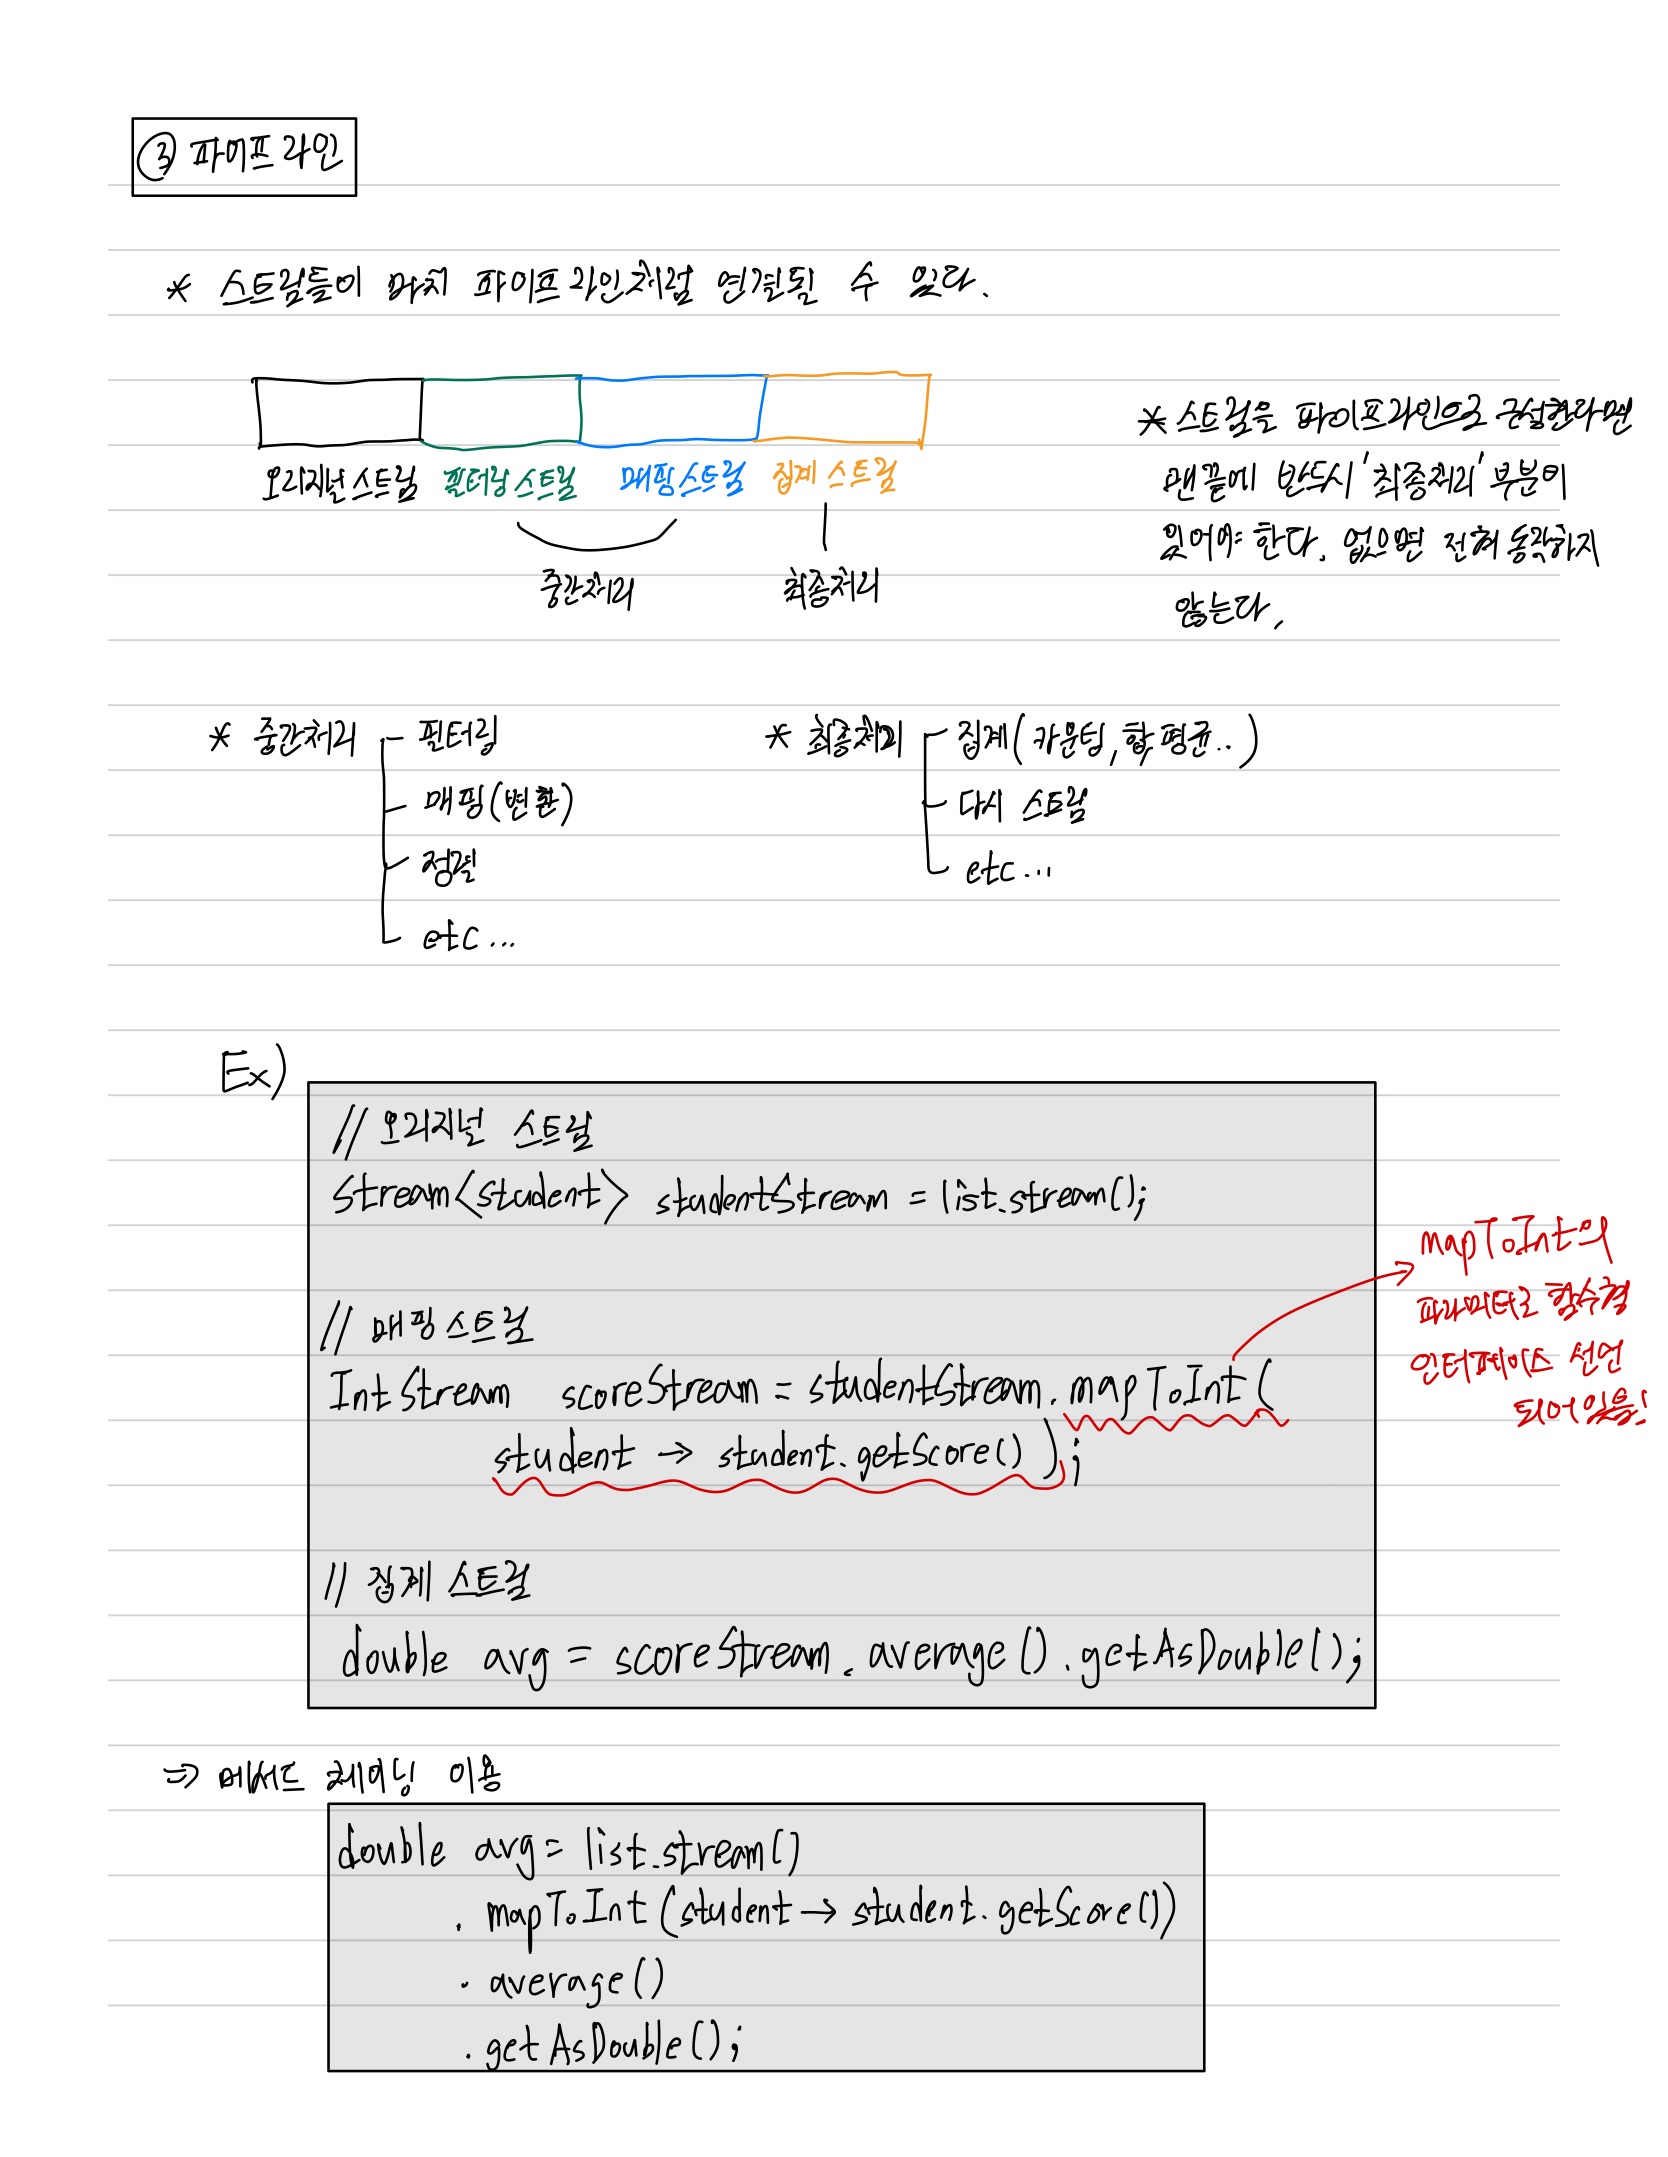 ③ 파이프라인
* 스트림들이 마치 파이프라인처럼 연결될 수 있다.
오리지널 스트림 필터링 스트림 매핑 스트림 집계 스트림
중간처리 최종처리
* 스트림을 파이프라인으로 구성한다면
맨 끝에 반드시 '최종처리' 부분이
있어야 한다. 없으면 전혀 동작하지
않는다.
* 중간처리
- 필터링
- 매핑(변환)
- 정렬
- etc...
* 최종처리
- 집계(카운팅, 합, 평균..)
- 다시 스트림
- etc...
Ex)
// 오리지널 스트림
Stream<student> studentStream = list.stream();
// 매핑 스트림
IntStream scoreStream = studentStream.mapToInt(
student → student.getScore() );
mapToInt의
파라미터로 함수형
인터페이스 선언
되어있음!
// 집계 스트림
double avg = scoreStream.average().getAsDouble();
⇒ 메서드 체이닝 이용
double avg = list.stream()
.mapToInt(student → student.getScore())
.average()
.getAsDouble();